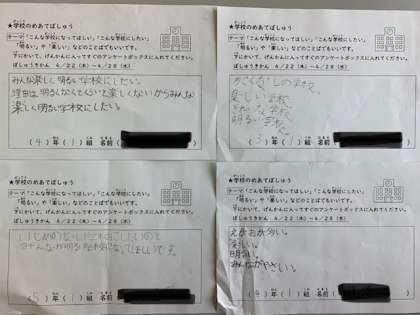 ★学校のめあてぼしゅう
テーマ「こんな学校になってほしい」「こんな学校にしたい」
「明るい」や「楽しい」などのことばでもいいです。
下にかいて、げんかんに入ってすぐのアンケートボックスに入れてください。
ぼしゅうきかん 4/22(木)～4/28(水)
みんな楽しく明るい学校にしたい。
理由は、明るくなくてくらいと楽しくないからみんな
楽しく明るい学校にしたい。
(4)年(1)組 名前
★学校のめあてぼしゅう
テーマ「こんな学校になってほしい」「こんな学校にしたい」
「明るい」や「楽しい」などのことばでもいいです。
下にかいて、げんかんに入ってすぐのアンケートボックスに入れてください。
ぼしゅうきかん 4/22(木)～4/28(水)
の学校。
楽しい学校。
きれいな学校。
明るい学校。
(3)年(1)組 名前
★学校のめあてぼしゅう
テーマ「こんな学校になってほしい」「こんな学校にしたい」
「明るい」や「楽しい」などのことばでもいいです。
下にかいて、げんかんに入ってすぐのアンケートボックスに入れてください。
ぼしゅうきかん 4/22(木)～4/28(水)
いじめのない学校にしたいのと
みんなが明るい学校になってほしいです。
(5)年(1)組 名前
★学校のめあてぼしゅう
テーマ「こんな学校になってほしい」「こんな学校にしたい」
「明るい」や「楽しい」などのことばでもいいです。
下にかいて、げんかんに入ってすぐのアンケートボックスに入れてください。
ぼしゅうきかん 4/22(木)～4/28(水)
えがおが多い。
楽しい。
明るい。
みんながやさしい。
(4)年(1)組 名前